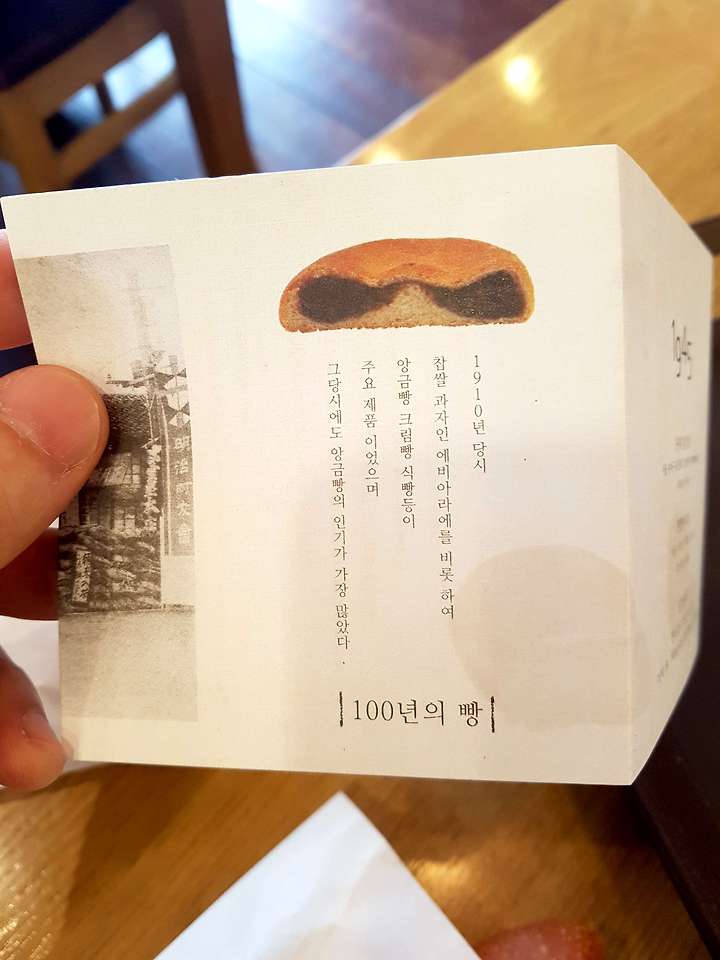 1910년 당시
찹쌀 과자인 에비아라에를 비롯 하여
앙금빵 크림빵 식빵등이
주요 제품 이었으며
그당시에도 앙금빵의 인기가 가장 많았다.
100년의 빵
1945